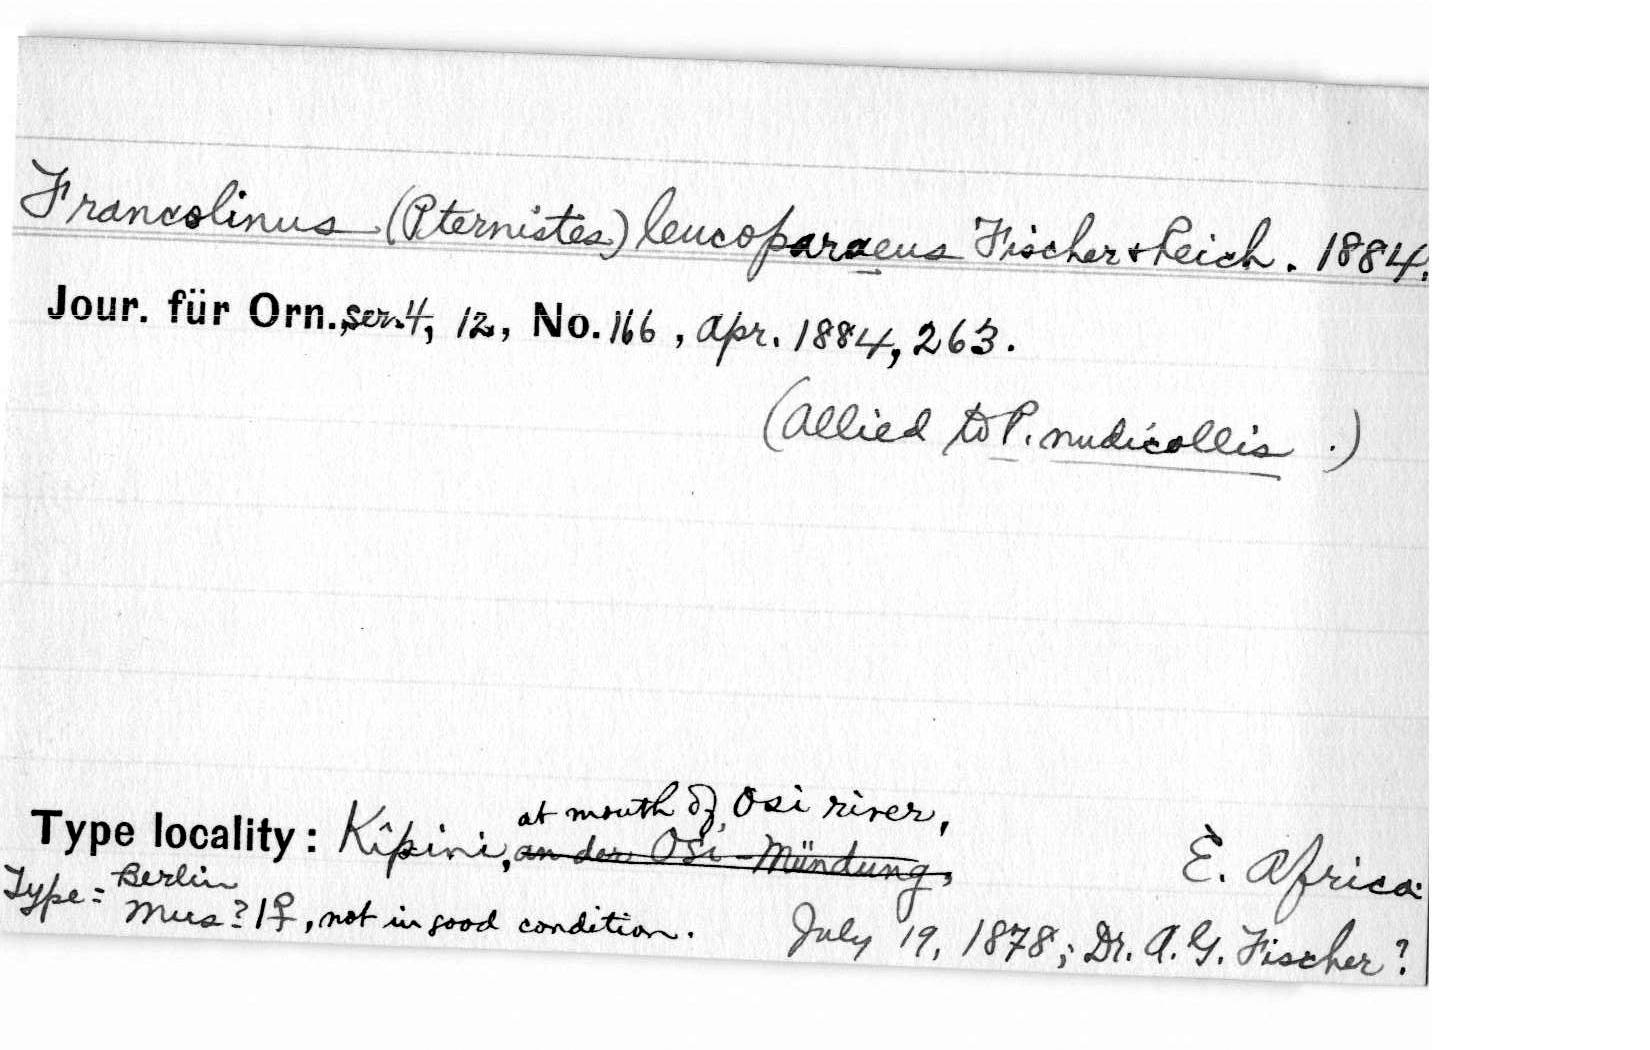 Francolinus (Pternistes) leucoparaeus Fischer & Reich. 1884.
Jour. für Orn., ser. 4, 12, No. 166, Apr. 1884, 263.
(Allied to P. nudicollis .)
at mouth of Osi river,
Type locality: Kipini, an der Osi-Mündung, E. Africa.
Type = Berlin
Mus? 1♀, not in good condition. July 19, 1878; Dr. A. G. Fischer?